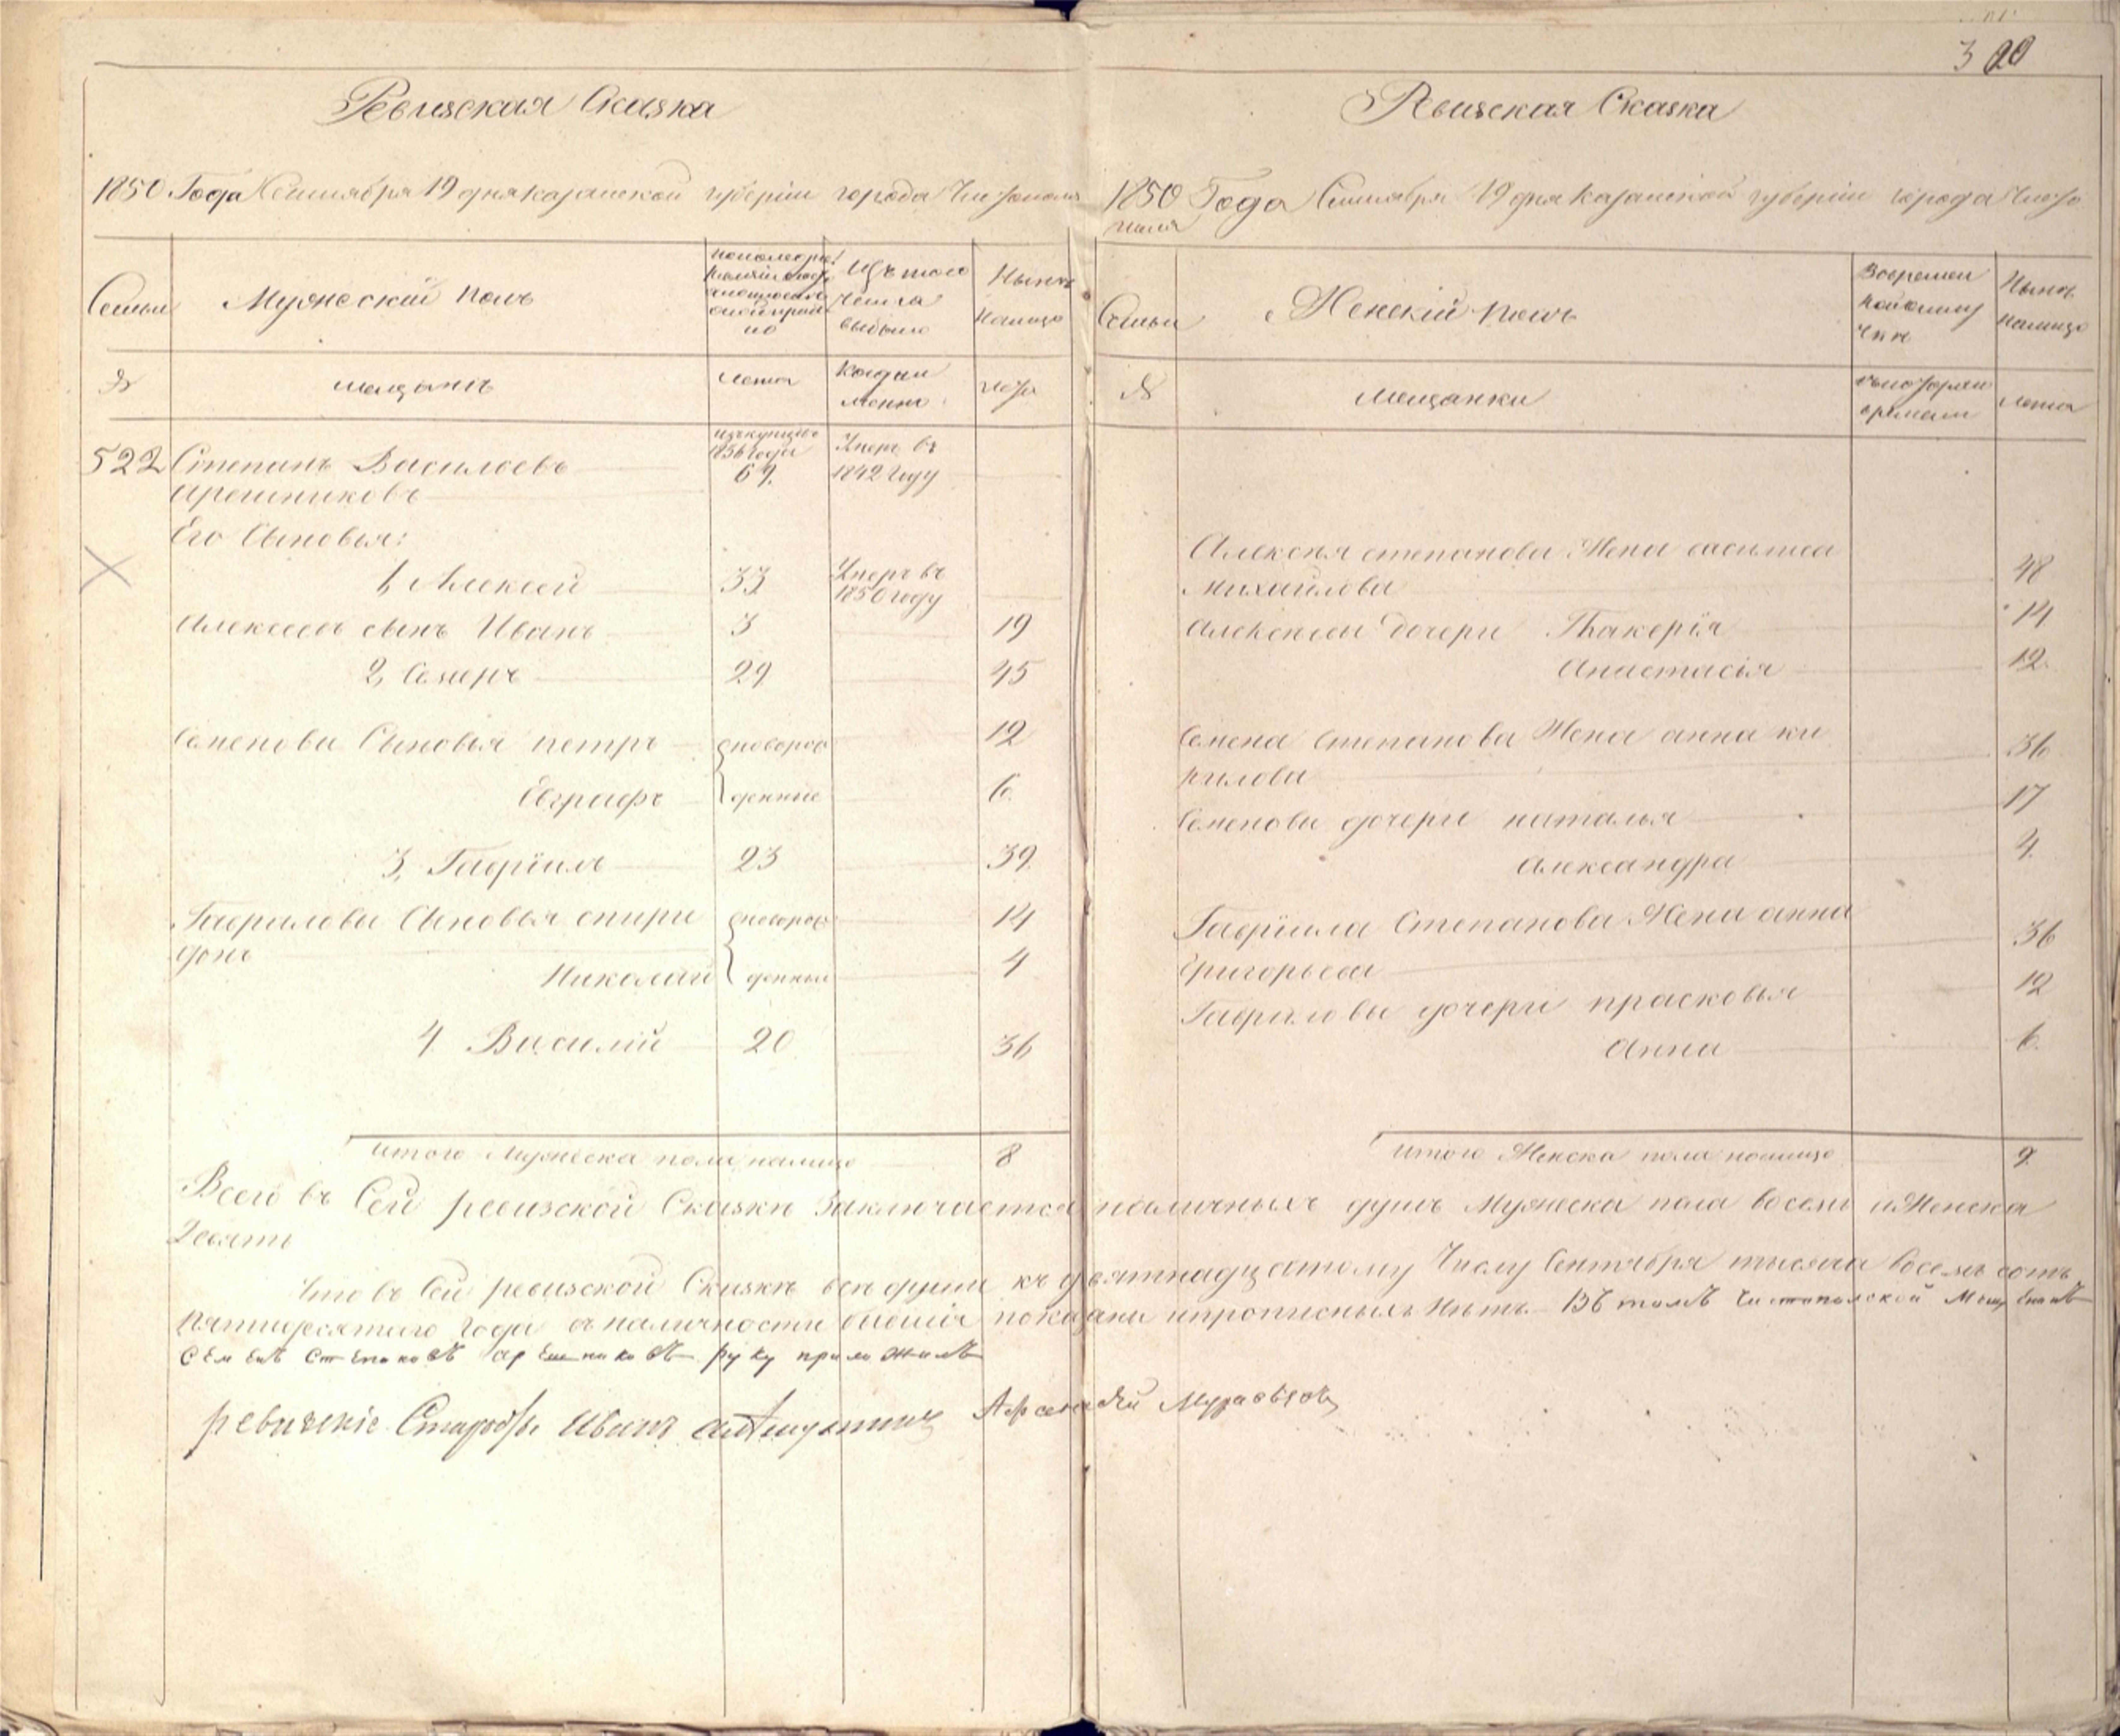 3
Ревизская Сказка
1850 Года Сентября 19 дня Казанской губернии города Чистополя
Семьи
Мужескій полъ
Изъ того числа выбыло
Нынѣ на лицо
№
мещанъ
Лета
Когда именно
лета
522 Степанъ Васильевъ
Арешниковъ
69
Умеръ въ
1842 году
Его Сыновья:
1, Алексей 33
Умеръ въ
1850 году
Алексеевъ сынъ Иванъ 3 19
2, Семенъ 29 45
Семеновы Сыновья петръ новорож 12
Евграфъ денные 6.
3, Гавріилъ 23 39
Гавриловы Сыновья спири новорож 14
донъ
Николай денныи 4
4. Василій 20 36
итого Мужеска пола налицо 8
Ревизская Сказка
1850 Года Сентября 19 дня Казанской губернии города Чисто
поля
Семьи
Женскій полъ
Нынѣ на лицо
№
Мещанки
Лета
Алексѣя степанова Жена василиса
Михайлова 48
Алексѣевы Дочери Гликерія 14
Анастасія 12.
Семена Степанова Жена анна ки
рилова 36
Семеновы дочери наталья 17
Александра 4.
Гавріила Степанова Жена анна
Григорьева 36
Гавриловы дочери прасковья 12
Анна 6.
итого Женска пола налицо 9.
Всего въ Сей ревизской Сказкѣ Заключается наличныхъ душъ Мужеска пола восемь и Женска
Девять
Что въ Сей ревизской Сказкѣ всѣ души къ девятнадцатому Числу Сентября тысяча восемь сотъ
пятидесятого Года в наличности бывшія показаны и прописныхъ Нѣтъ. Въ томъ Чистопольской Мещенинъ
Семенъ Степановъ Арешниковъ руку приложилъ
ревизскіе Старосты Иванъ